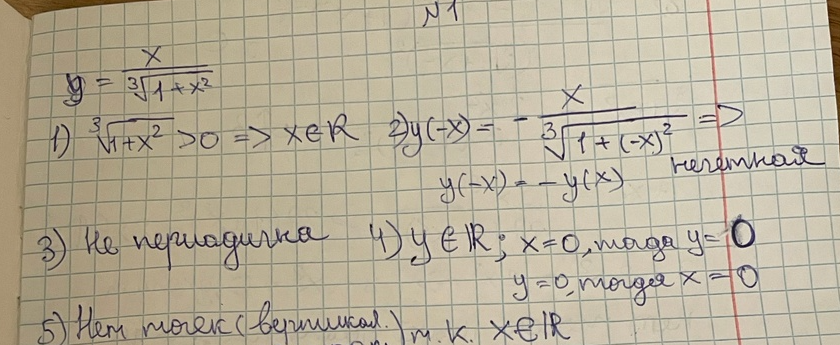 №1
y = x / ∛(1+x²)
1) ∛(1+x²) >0 => x∈R 2) y(-x) = - x / ∛(1+(-x)²) =>
нечетная
y(-x) = -y(x)
3) Не периодична 4) y∈R; x=0, тогда y=0
y=0, тогда x=0
5) Нет точек (вертикал.) т.к. x∈R